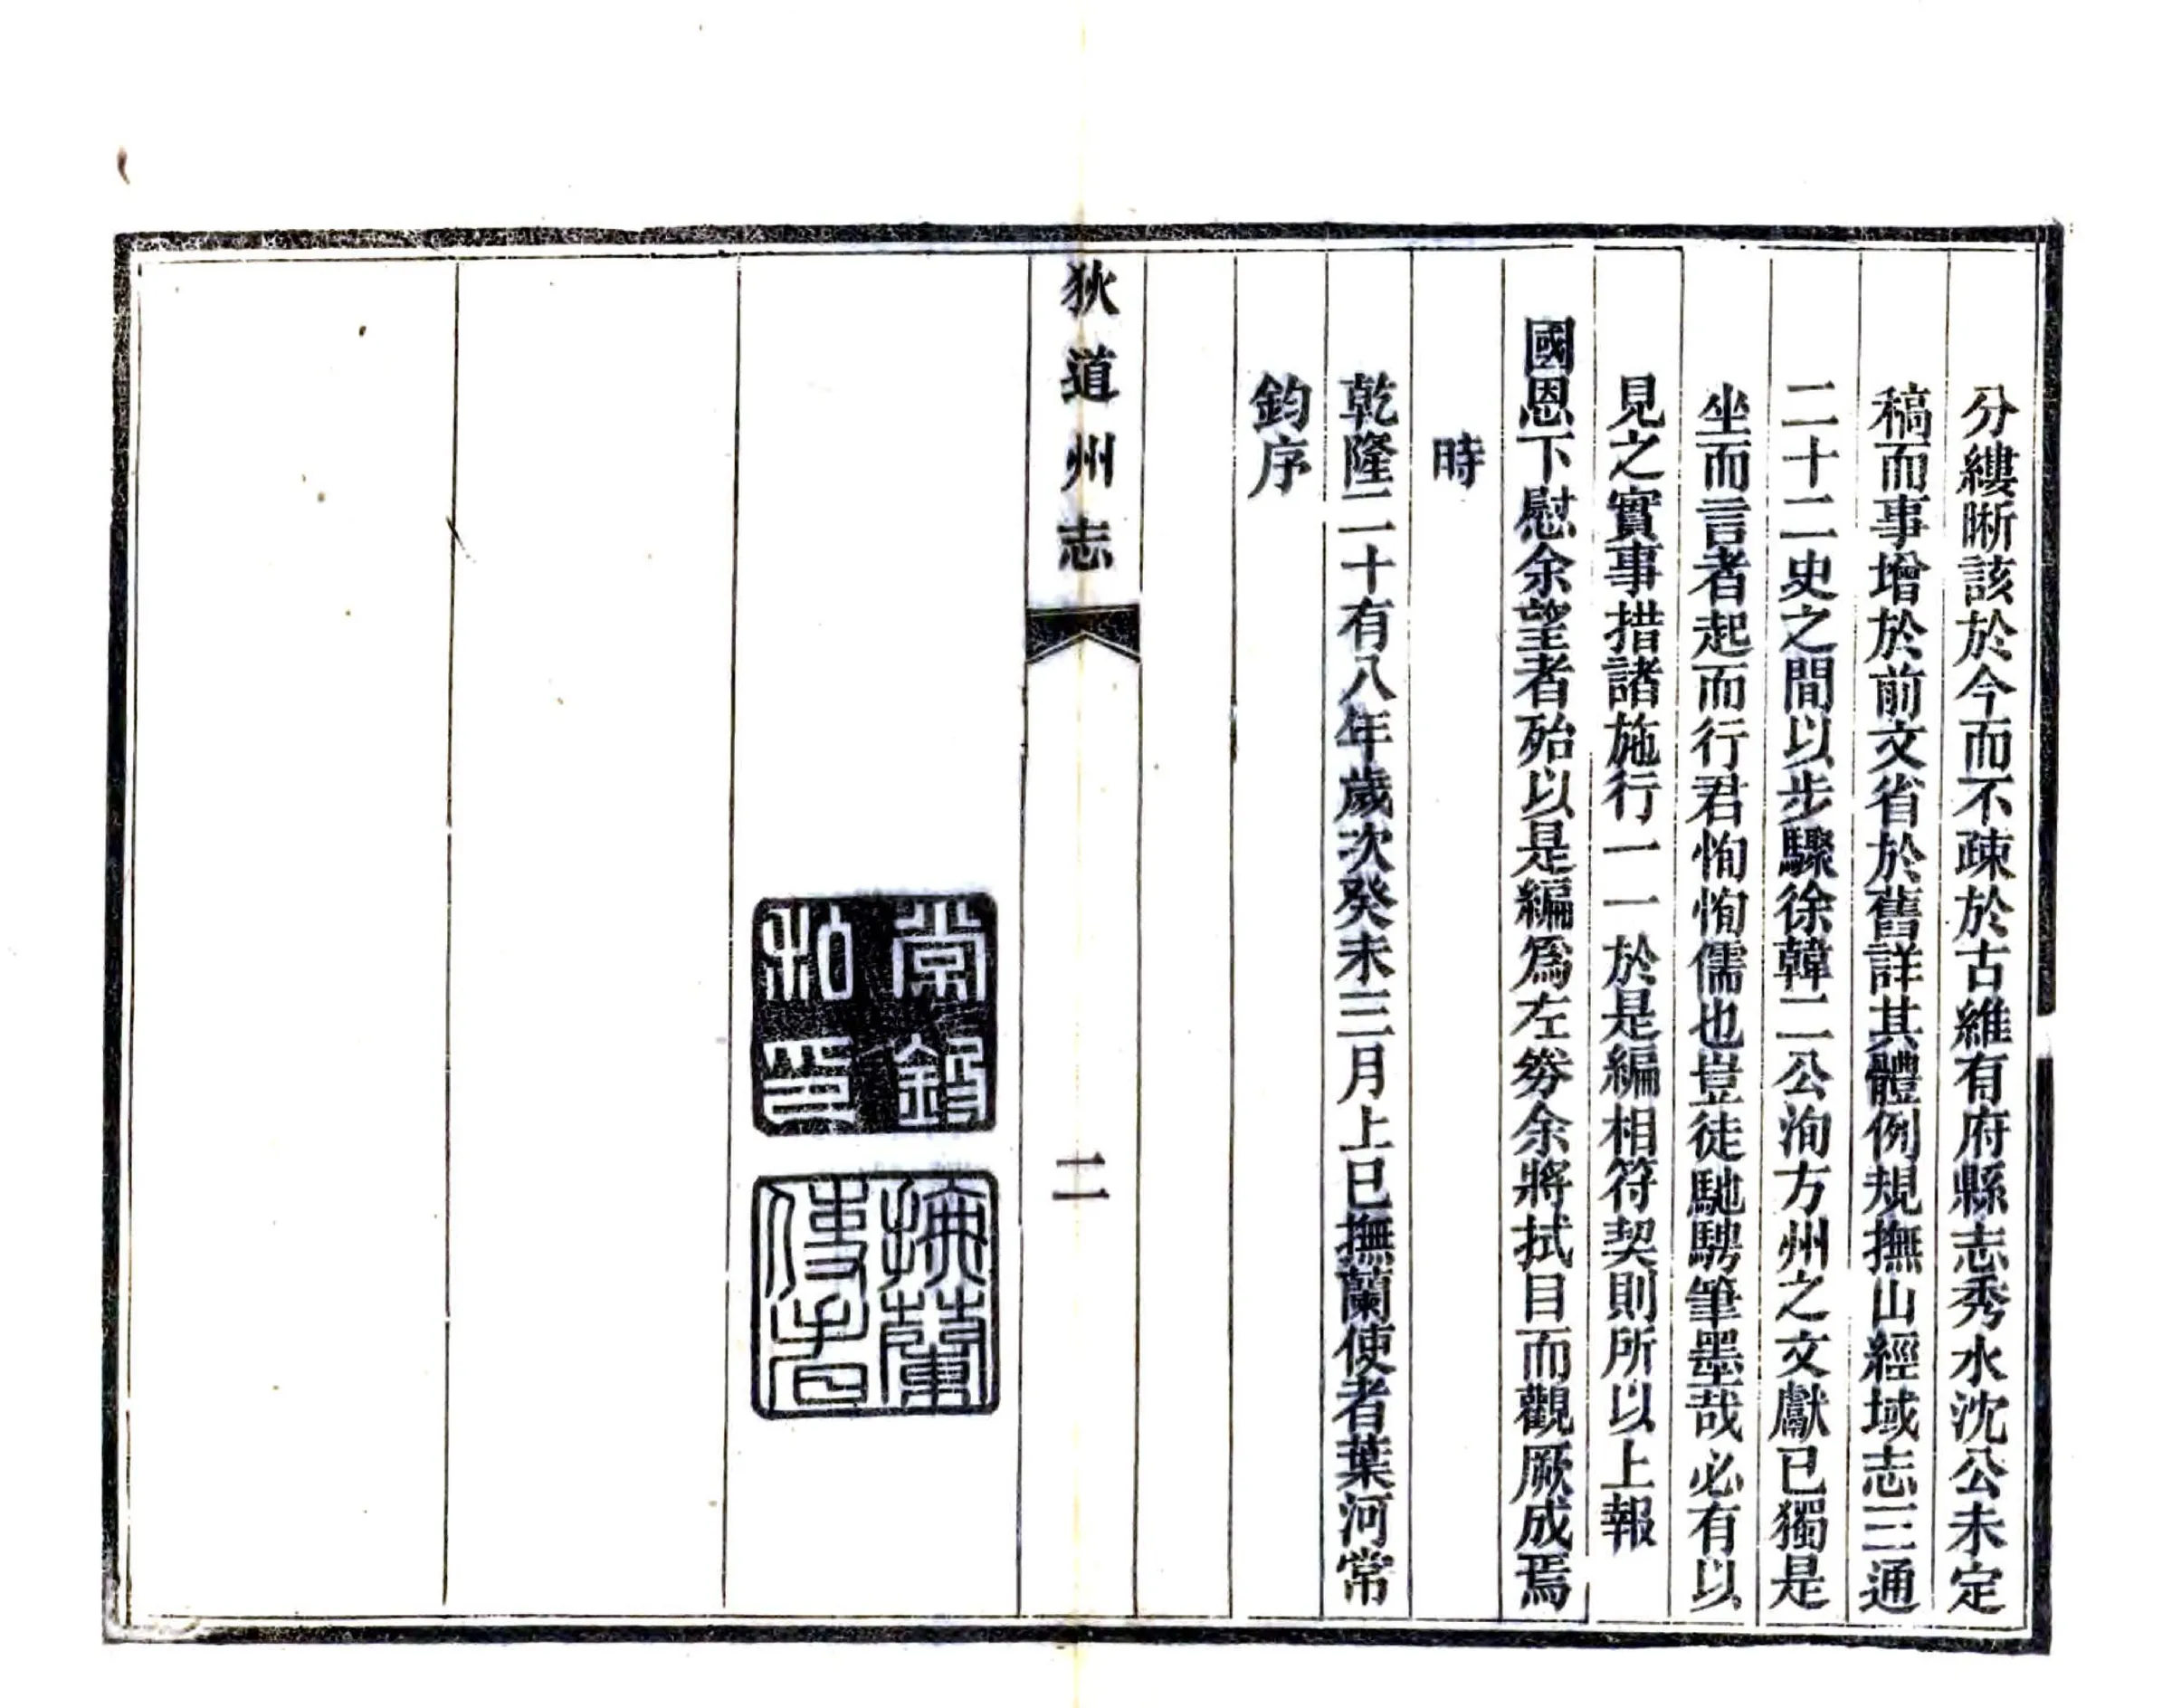 分縷晣該於今而不疎於古維有府縣志秀水沈公未定
稿而事增於前文省於舊詳其體例規撫山經域志三通
二十二史之間以步驟徐韓二公洵方州之文獻已獨是
坐而言者起而行君恂恂儒也豈徒馳騁筆墨哉必有以
見之實事措諸施行一一於是編相符契則所以上報
國恩下慰余望者殆以是編爲左劵余將拭目而觀厥成焉
時
乾隆二十有八年歲次癸未三月上巳撫蘭使者葉河常
鈞序
狄道州志
二
常鈞和印
撫蘭使者